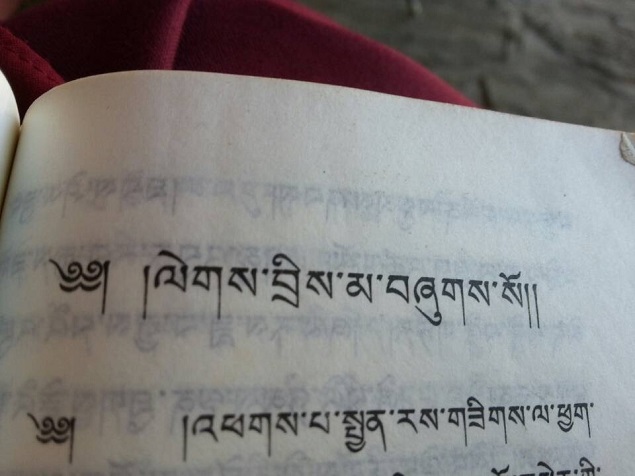 ༄༅། །ལེགས་བྲིས་མ་བཞུགས་སོ།།
༄༅། །འཕགས་པ་སྤྱན་རས་གཟིགས་ལ་ཕྱག་